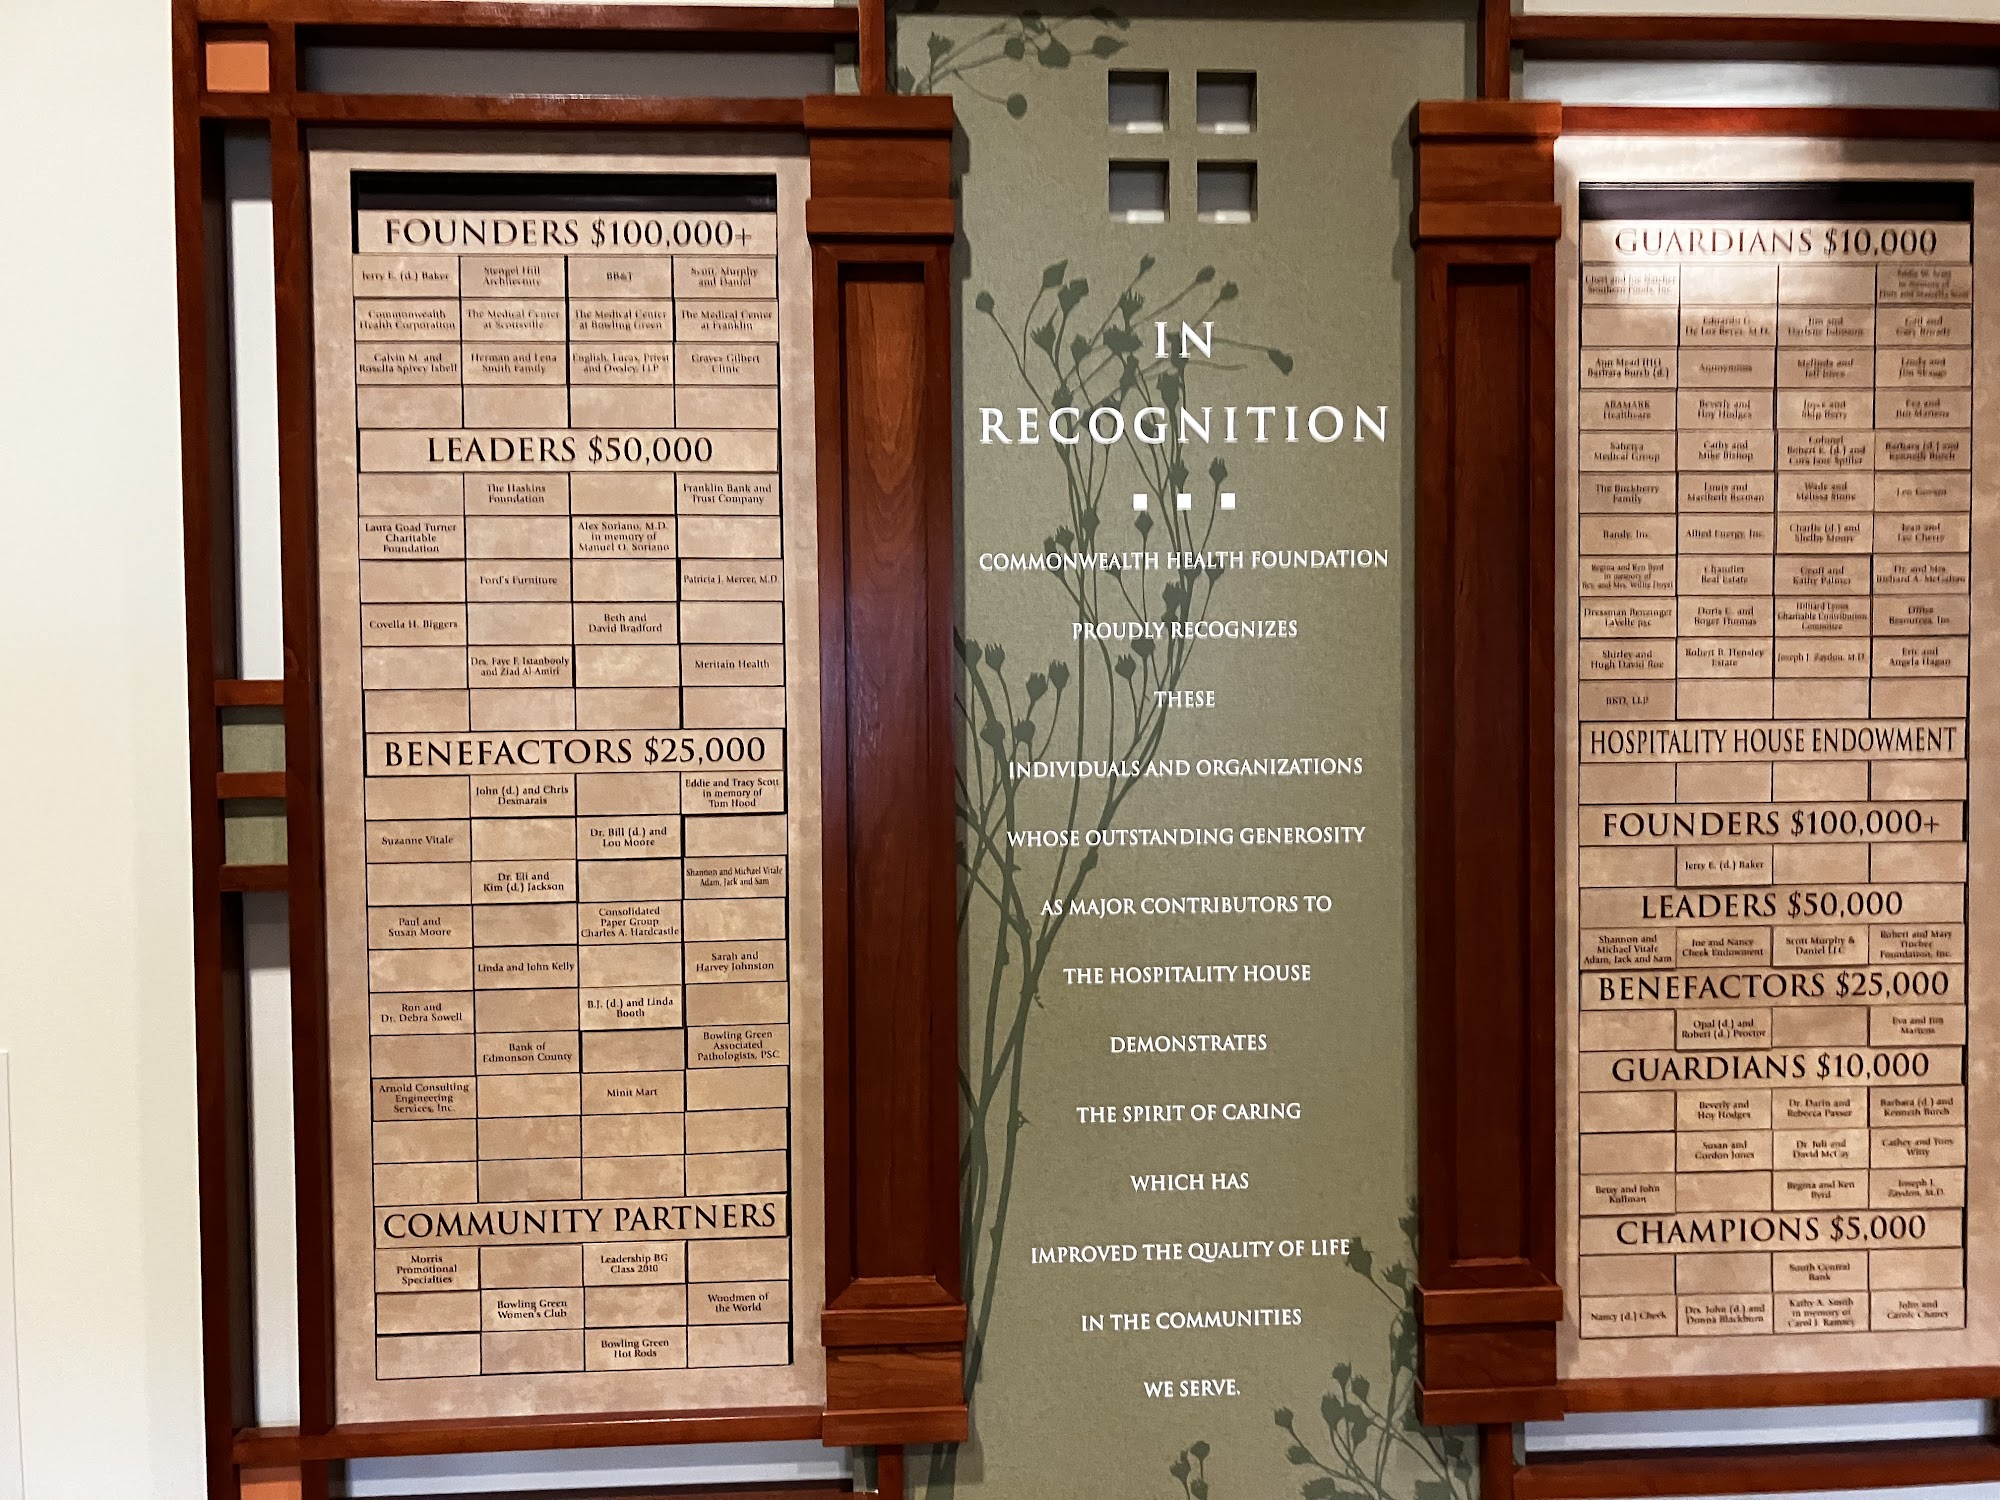 FOUNDERS $100,000+
Jerry E. (d.) Baker
Stengel Hill
Architecture
BB&T
Scott, Murphy
and Daniel
Commonwealth
Health Corporation
The Medical Center
at Scottsville
The Medical Center
at Bowling Green
The Medical Center
at Franklin
Calvin M. and
Rosella Spivey Isbell
Herman and Lena
Smith Family
English, Lucas, Priest
and Owsley, LLP
Graves Gilbert
Clinic
LEADERS $50,000
The Haskins
Foundation
Franklin Bank and
Trust Company
Laura Goad Turner
Charitable
Foundation
Alex Soriano, M.D.
in memory of
Manuel O. Soriano
Ford's Furniture
Patricia J. Mercer, M.D.
Covella H. Biggers
Beth and
David Bradford
Drs. Faye F. Istanbooly
and Ziad Al-Amiri
Meritain Health
BENEFACTORS $25,000
John (d.) and Chris
Desmarais
Eddie and Tracy Scott
in memory of
Tom Hood
Suzanne Vitale
Dr. Bill (d.) and
Lou Moore
Dr. Eli and
Kim (d.) Jackson
Shannon and Michael Vitale
Adam, Jack and Sam
Paul and
Susan Moore
Consolidated
Paper Group
Charles A. Hardcastle
Linda and John Kelly
Sarah and
Harvey Johnston
Ron and
Dr. Debra Sowell
B.J. (d.) and Linda
Booth
Bank of
Edmonson County
Bowling Green
Associated
Pathologists, PSC
Arnold Consulting
Engineering
Services, Inc.
Minit Mart
COMMUNITY PARTNERS
Morris
Promotional
Specialties
Leadership BG
Class 2010
Bowling Green
Women's Club
Woodmen of
the World
Bowling Green
Hot Rods
IN
RECOGNITION
COMMONWEALTH HEALTH FOUNDATION
PROUDLY RECOGNIZES
THESE
INDIVIDUALS AND ORGANIZATIONS
WHOSE OUTSTANDING GENEROSITY
AS MAJOR CONTRIBUTORS TO
THE HOSPITALITY HOUSE
DEMONSTRATES
THE SPIRIT OF CARING
WHICH HAS
IMPROVED THE QUALITY OF LIFE
IN THE COMMUNITIES
WE SERVE.
GUARDIANS $10,000
Southern Foods, Inc.
Eduardo G.
De Los Reyes, M.D.
Jim and
Darlene Johnson
Gary Broady
Ann Mead (d.)
Barbara Burch (d.)
Anonymous
Melinda and
Jeff Joyce
Linda and
Jim Skaggs
ARAMARK
Healthcare
Beverly and
Hoy Hodges
Joyce and
Skip Berry
Eva and
Jim Martens
Medical Group
Cathy and
Mike Bishop
Colonel
Robert E. (d.) and
Cora Jane Spiller
Barbara (d.) and
Kenneth Burch
The Buckberry
Family
Louis and
Maribeth Berman
Wade and
Melissa Stone
Bandy, Inc.
Allied Energy, Inc.
Charlie (d.) and
Shelby Moore
Jean and
Lee Cherry
Regina and Ken Byrd
in memory of
Rev. and Mrs. Willie Byrd
Chandler
Real Estate
Geoff and
Kathy Palmer
Dr. and Mrs.
Dressman Benzinger
LaVelle psc
Doris C. and
Roger Thomas
Hilliard Lyons
Charitable Contribution
Committee
Office
Resources, Inc.
Shirley and
Hugh David Roe
Robert B. Hensley
Estate
Joseph J. Zaydon, M.D.
Eric and
Angela Hagan
BKD, LLP
HOSPITALITY HOUSE ENDOWMENT
FOUNDERS $100,000+
Jerry E. (d.) Baker
LEADERS $50,000
Shannon and
Michael Vitale
Adam, Jack and Sam
Joe and Nancy
Cheek Endowment
Scott Murphy &
Daniel LLC
Robert and Mary
Trocher
Foundation, Inc.
BENEFACTORS $25,000
Opal (d.) and
Robert (d.) Proctor
Eva and Jim
Martens
GUARDIANS $10,000
Beverly and
Hoy Hodges
Dr. Darin and
Rebecca Passer
Barbara (d.) and
Kenneth Burch
Susan and
Gordon Jones
Dr. Juli and
David McCay
Cathey and Tom
Witty
Betsy and John
Kullman
Regina and Ken
Byrd
Joseph J.
Zaydon, M.D.
CHAMPIONS $5,000
South Central
Bank
Nancy (d.) Cheek
Drs. John (d.) and
Donna Blackburn
Kathy A. Smith
in memory of
Carol J. Ramsey
John and
Carole Chaney